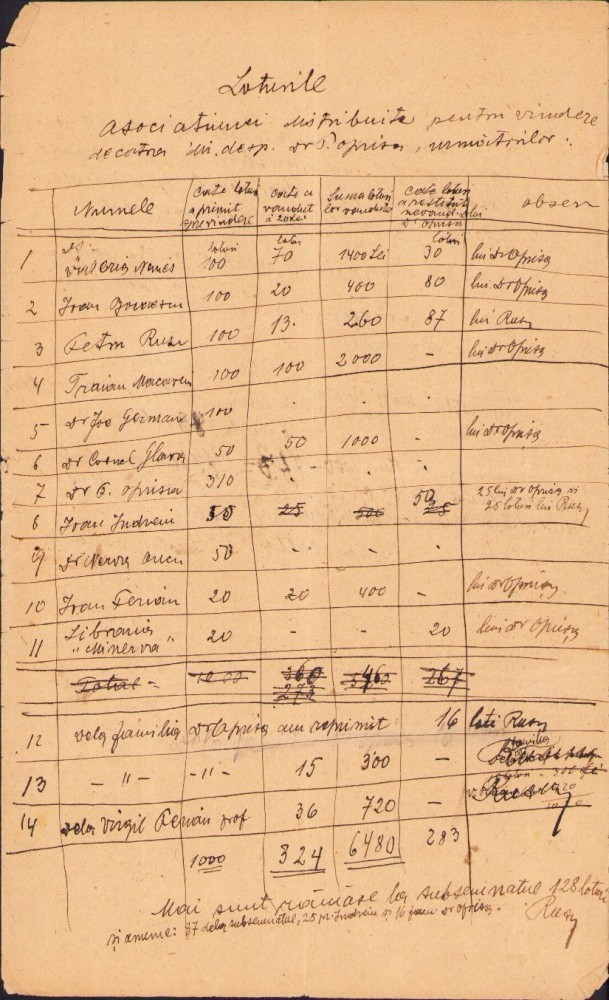 Loturile
Asociatiunei distribuite pentru vindere
decatra dl. desp. Dr P. Oprisa, urmatorilor:
Numele | Cate loturi a primit spre vindere | Cate a vandut a 20 Lei | Suma loturilor vandute | Cate loturi a restituit nevandute dlui Dr Oprisa | obserr
1 | Valeria Nanes | loturi 100 | loturi 70 | 1400 Lei | loturi 30 | lui Dr Oprisa
2 | Ioan | 100 | 20 | 400 | 80 | lui Dr Oprisa
3 | Petru Rusu | 100 | 13. | 260 | 87 | lui Rusu
4 | Traian Macaveiu | 100 | 100 | 2000 | - | lui Dr Oprisa
5 | Dr Joe German | 100 | . | . | .
6 | Dr Cornel Glava | 50 | 50 | 1000 | - | lui Dr Oprisa
7 | Dr P. Oprisa | 310 | - | . | .
8 | Ioan Indreiu | 50 | 25 | 500 | 50 25 | 25 lui Dr Oprisa si 25 loturi lui Rusu
9 | Dr Nerva | 50 | - | - | .
10 | Ioan Ferian | 20 | 20 | 400 | | lui Dr Oprisa
11 | Libraria "Minerva" | 20 | - | - | 20 | lui Dr Oprisa
Total - | 1000 | 360 273 | 5460 | 267
12 | dela familia Dr Oprisa am reprimit | 16 | loti Rusu
13 | - " - | - " - | 15 | 300 | -
14 | dela Virgil Ferian prof | 36 | 720 | -
1000 | 324 | 6480 | 283
Mai sunt rămase la subsemnatul 128 loturi
și anume: 87 dela subsemnatul, 25 pr. Indreiu si 16 fam. Dr Oprisa. Rusu